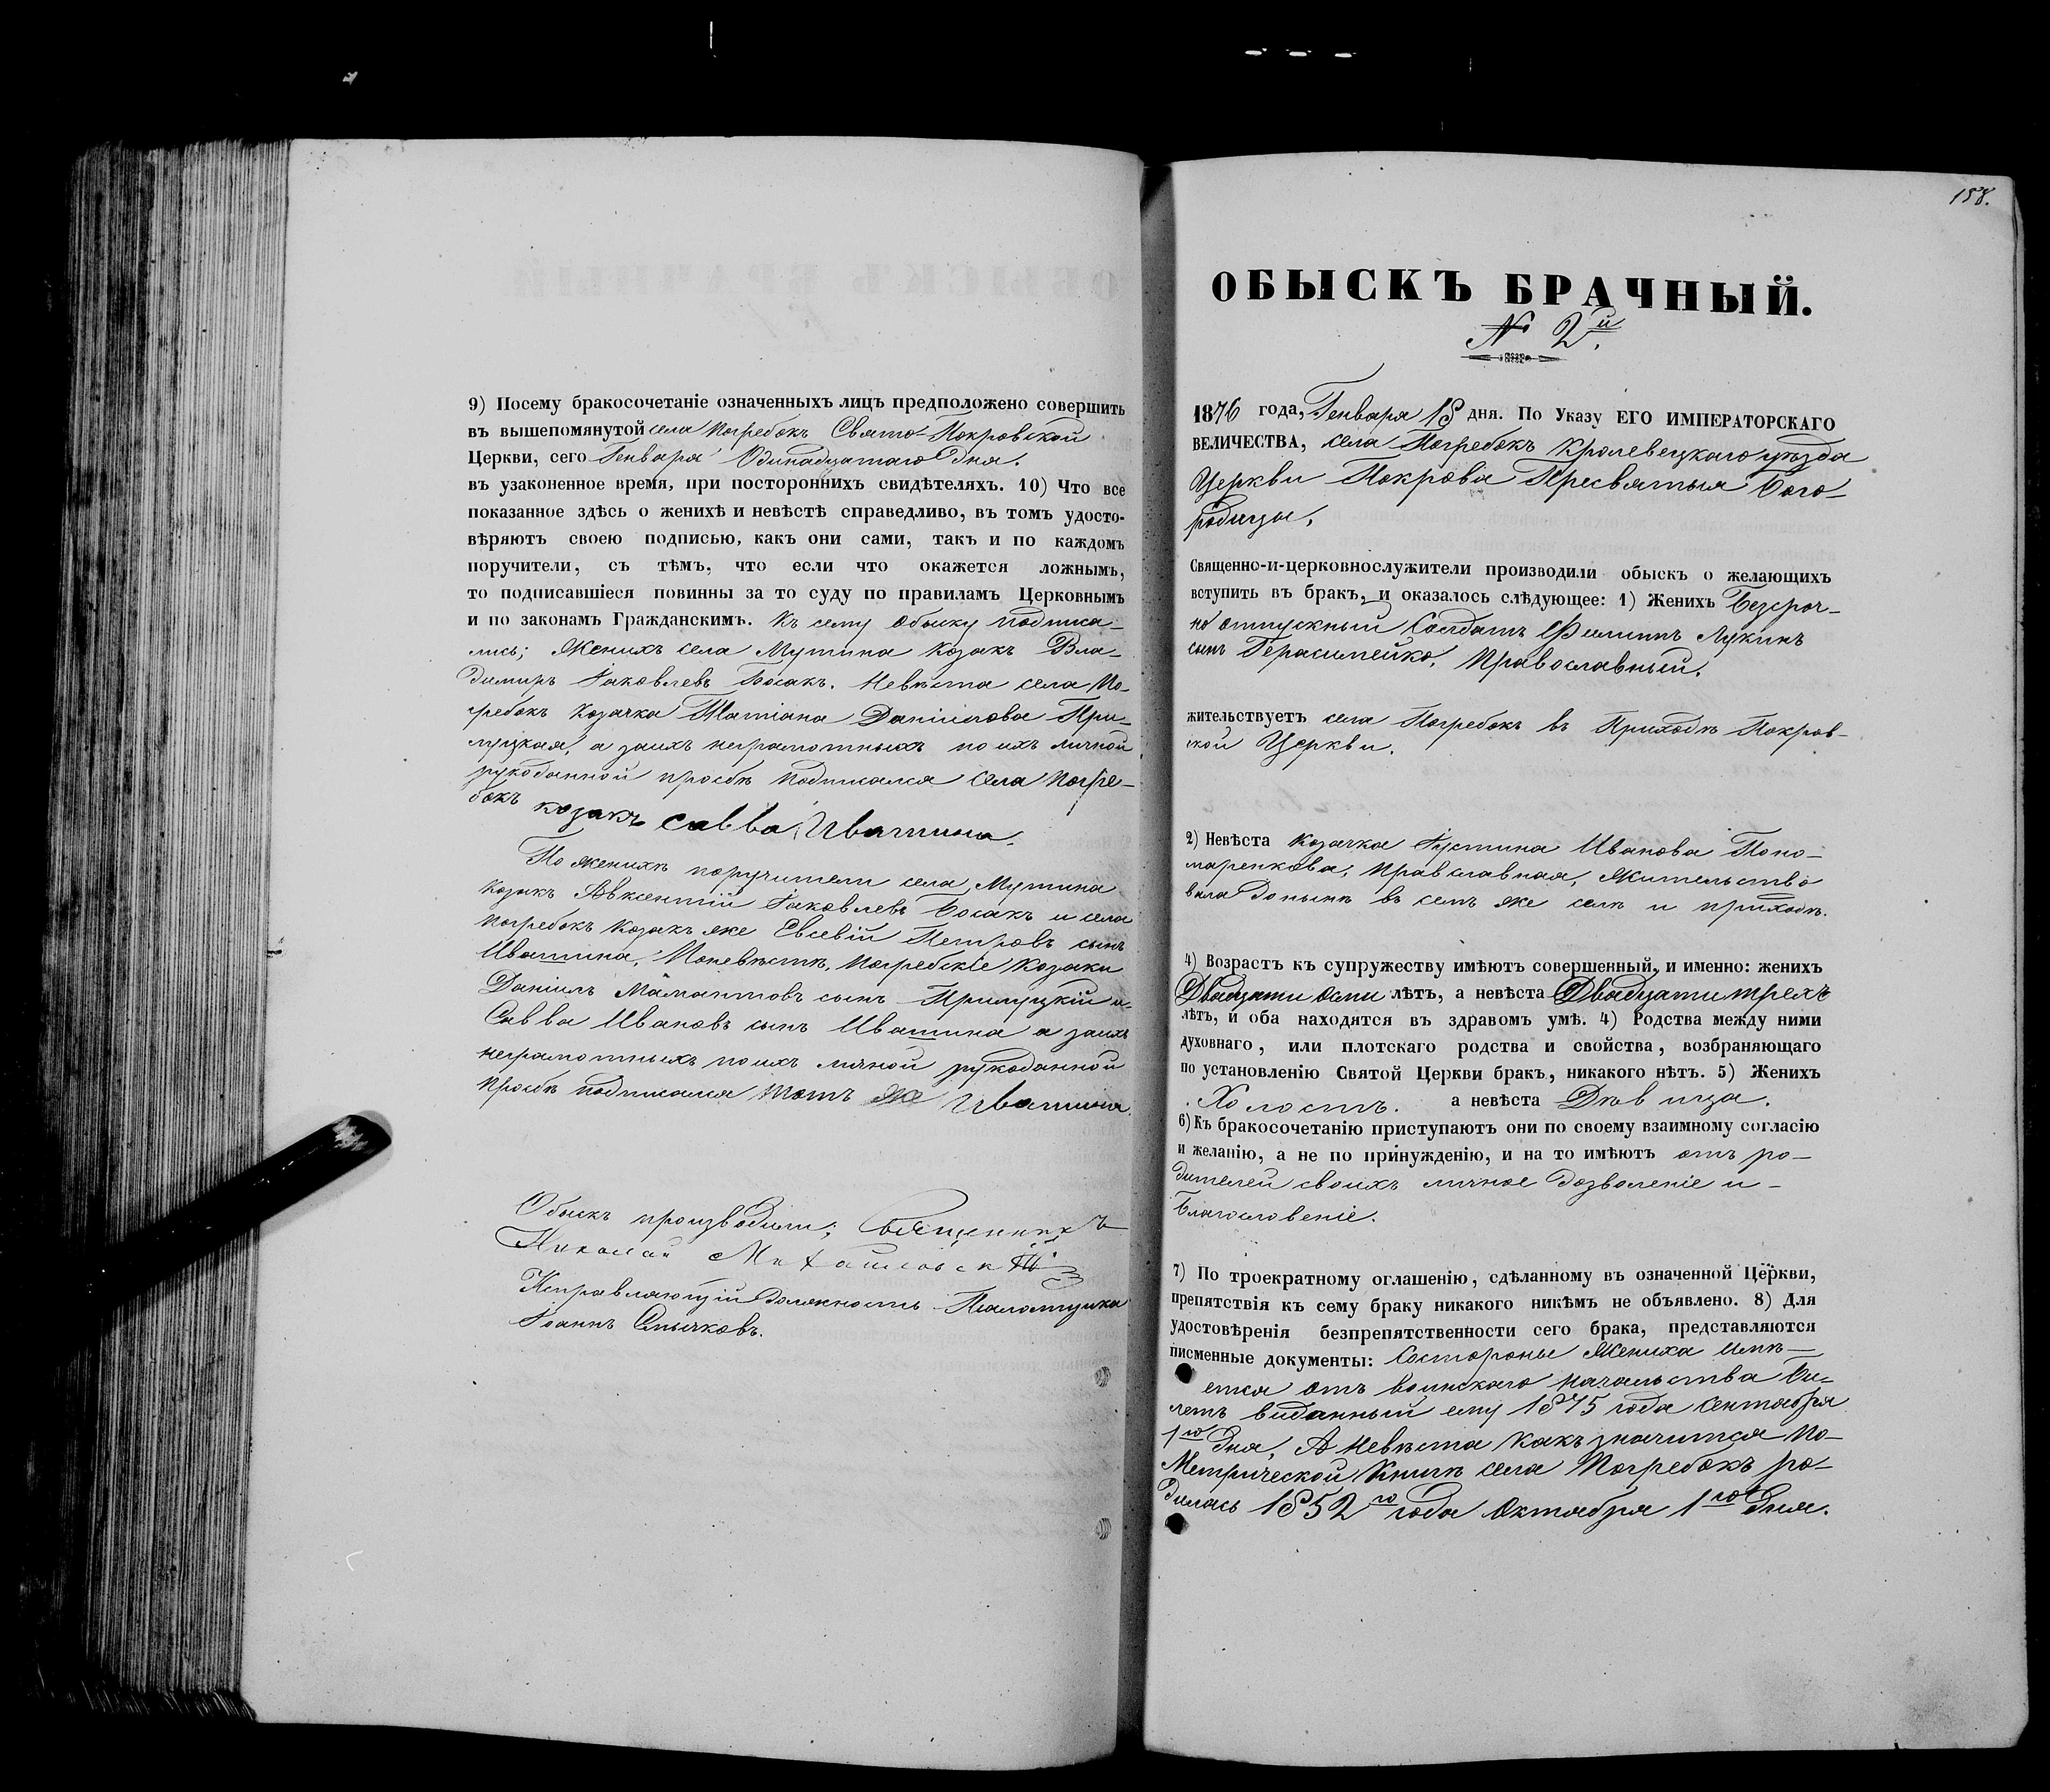 9) Посему бракосочетаніе означенныхъ лицъ предположено совершить
въ вышепомянутой села Погребокъ Свято-Покровской
Церкви, сего Генваря Одинадцатаго Дня.
въ узаконенное время, при постороннихъ свидѣтеляхъ. 10) Что все
показанное здѣсь о женихѣ и невѣстѣ справедливо, въ томъ удосто-
вѣряютъ своею подписью, какъ они сами, такъ и по каждомъ
поручители, съ тѣмъ, что если что окажется ложнымъ,
то подписавшіеся повинны за то суду по правиламъ Церковнымъ
и по законамъ Гражданскимъ. Къ сему обыску подписа-
лись; Женихъ села Мутина козакъ Вла-
димиръ Іаковлевъ Босакъ. Невѣста села По-
гребокъ козачка Татіана Даніилова При-
луцкая, а заихъ неграмотныхъ по ихъ личной
рукоданной просьбѣ подписался села Погре-
бокъ козакъ Савва Ивашина.
По женихѣ поручители села Мутина
козакъ Авксентій Іаковлевъ Босакъ и села
Погребокъ козакъ же Евсевій Петровъ сынъ
Ивашина, Поневѣстѣ, Погребскіе козаки
Даніилъ Мамантовъ сынъ Прилуцкій и
Савва Ивановъ сынъ Ивашина а заихъ
неграмотныхъ по ихъ личной рукоданной
просьбѣ подписался тотъ же Ивашина
Обыскъ производили; Священникъ
Николай Михайловскій
Исправляющій Должность Псаломщика
Іоаннъ Смычковъ.
158.
ОБЫСКЪ БРАЧНЫЙ.
№ 2й.
1876 года, Генваря 18 дня. По Указу ЕГО ИМПЕРАТОРСКАГО
ВЕЛИЧЕСТВА, села Погребокъ Кролевецкаго уѣзда
Церкви Покрова Пресвятыя Бого-
родицы,
Священно-и-церковнослужители производили обыскъ о желающихъ
вступить въ бракъ, и оказалось слѣдующее: 1) Женихъ Безсроч-
но отпускный Солдатъ Филиппъ Лукинъ
сынъ Герасимейко, Православный.
жительствуетъ села Погребокъ въ Приходѣ Покров-
ской Церкви.
2) Невѣста козачка Іустина Иванова Поно-
маренкова, Православная, Жительство
вала Донынѣ въ семъ же селѣ и приходѣ.
4) Возрастъ къ супружеству имѣютъ совершенный, и именно: женихъ
Двадцати осми лѣтъ, а невѣста Двадцати трехъ
лѣтъ, и оба находятся въ здравомъ умѣ. 4) Родства между ними
духовнаго, или плотскаго родства и свойства, возбраняющаго
по установленію Святой Церкви бракъ, никакого нѣтъ. 5) Женихъ
Холостъ. а невѣста Дѣвица.
6) Къ бракосочетанію приступаютъ они по своему взаимному согласію
и желанію, а не по принужденію, и на то имѣютъ отъ ро-
дителей своихъ личное дозволеніе и
Благословеніе.
7) По троекратному оглашенію, сдѣланному въ означенной Церкви,
препятствія къ сему браку никакого никѣмъ не объявлено. 8) Для
удостовѣренія безпрепятственности сего брака, представляются
писменные документы: Состороны Жениха имѣ-
ется отъ воинскаго начальства Би-
летъ виданный ему 1875 года Сентября
1го Дня, А Невѣста какъ значится по
Метрической Книгѣ села Погребокъ ро-
дилась 1852го года Октября 1го Дня.